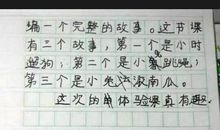 编一个完整的故事。这节课
有三个故事，第一个是小时
遛狗；第二个是小兔跳绳；
第三个是小兔滚南瓜。
这次的单体验课真有趣